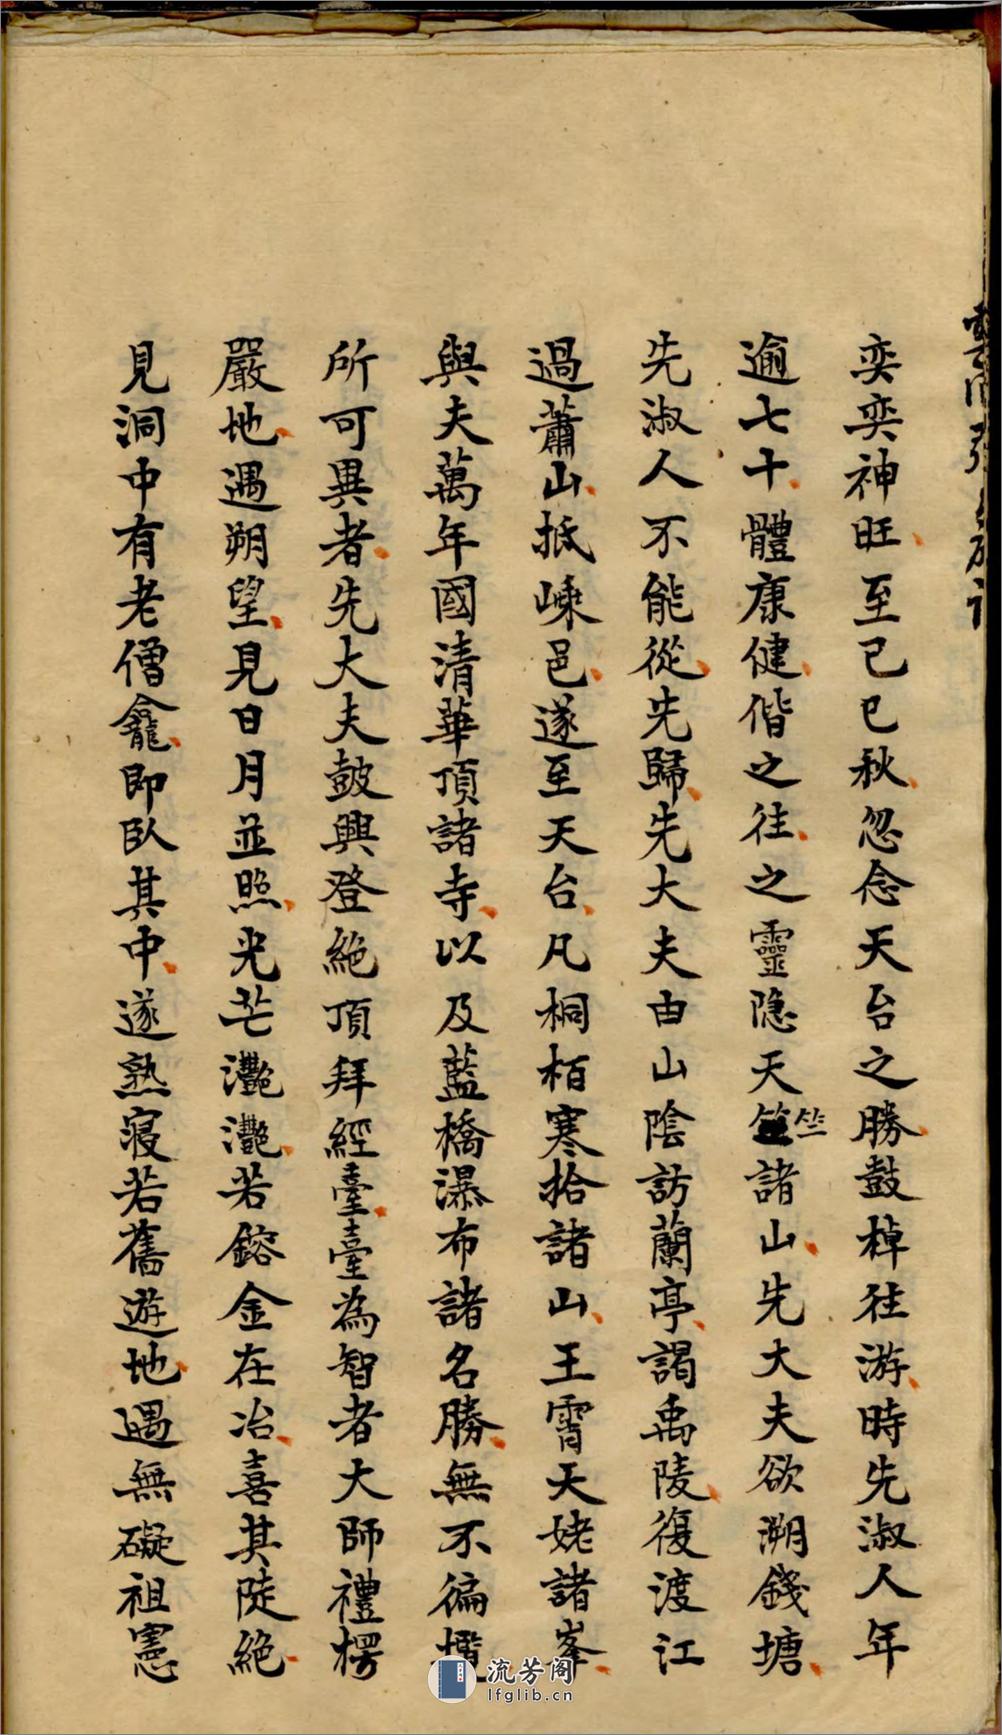 奕奕神旺至己巳秋忽念天台之勝鼓棹往游時先淑人年
逾七十體康健偕之往之靈隐天竺諸山先大夫欲溯錢塘
先淑人不能從先歸先大夫由山陰訪蘭亭謁禹陵復渡江
過蕭山抵嵊邑遂至天台凡桐栢寒拾諸山王霄天姥諸峯
與夫萬年國清華頂諸寺以及藍橋瀑布諸名勝無不徧攬
所可異者先大夫鼓興登絶頂拜經臺臺為智者大師禮楞
嚴地遇朔望見日月並照光芒灧灧若鎔金在冶喜其陡絶
見洞中有老僧龕即臥其中遂熟寢若舊遊地遇無礙祖憲
流芳阁
lfglib.cn